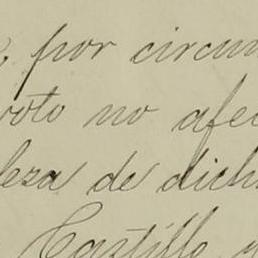 por circun
voto no afec
leza de dich
Castillo